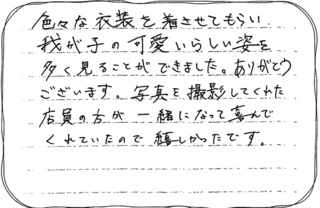 色々な衣装を着させてもらい
我が子の可愛いらしい姿を
多く見ることができました。ありがとう
ございます。写真を撮影してくれた
店員の方が一緒になって喜んで
くれていたので嬉しかったです。